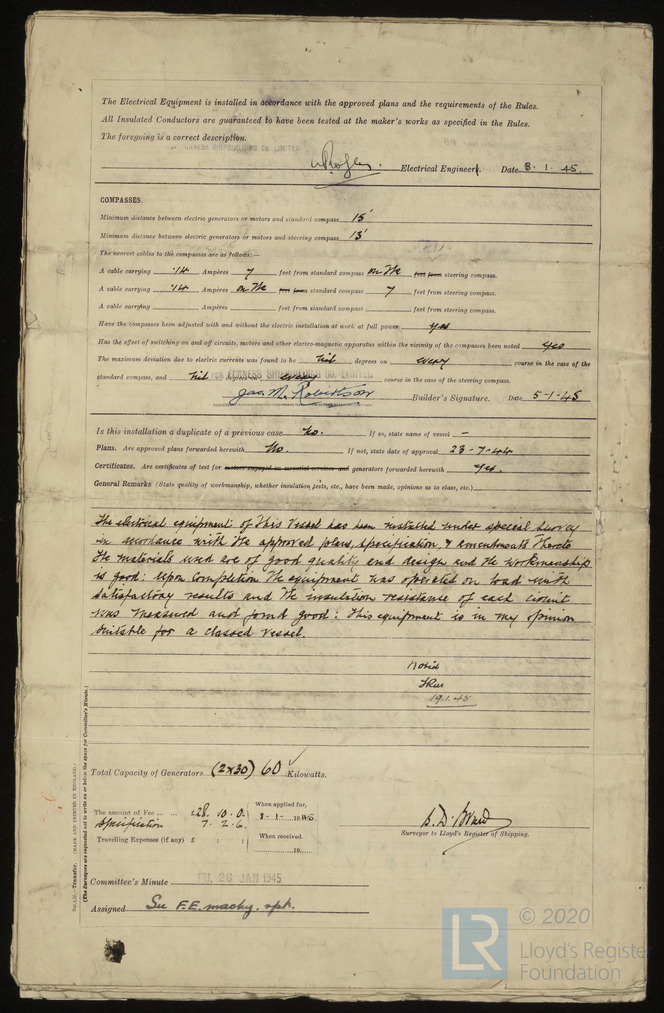 The Electrical Equipment is installed in accordance with the approved plans and the requirements of the Rules.
All Insulated Conductors are guaranteed to have been tested at the maker's works as specified in the Rules.
The foregoing is a correct description.
SHIPBUILDING Co. LIMITED
Electrical Engineer. Date 3.1.45.
COMPASSES.
Minimum distance between electric generators or motors and standard compass 15'
Minimum distance between electric generators or motors and steering compass 13'
The nearest cables to the compasses are as follows:—
A cable carrying .14 Ampères 7 feet from standard compass on the feet from steering compass.
A cable carrying .14 Ampères on the feet from standard compass 7 feet from steering compass.
A cable carrying Ampères feet from standard compass feet from steering compass.
Have the compasses been adjusted with and without the electric installation at work at full power yes
Has the effect of switching on and off circuits, motors and other electro-magnetic apparatus within the vicinity of the compasses been noted yes
The maximum deviation due to electric currents was found to be Nil degrees on every course in the case of the
standard compass, and Nil degrees on every course in the case of the steering compass.
FOR FURNESS SHIPBUILDING Co. LIMITED
Jas. M. Robertson Builder's Signature. Date 5-1-45
Is this installation a duplicate of a previous case No. If so, state name of vessel –
Plans. Are approved plans forwarded herewith No. If not, state date of approval 23-7-44
Certificates. Are certificates of test for motors engaged on essential services and generators forwarded herewith Yes.
General Remarks (State quality of workmanship, whether insulation tests, etc., have been made, opinions as to class, etc.)
The electrical equipment of this vessel has been installed under special survey
in accordance with the approved plans, specification, & amendments thereto
the materials used are of good quality and design and the workmanship
is good: Upon completion the equipment was operated on load with
satisfactory results and the insulation resistance of each circuit
was measured and found good: This equipment is in my opinion
suitable for a classed vessel.
Noted
19.1.45
Total Capacity of Generators (2x30) 60 Kilowatts.
The amount of Fee ... ... £28.10.0.
Specification 7.2.6.
Travelling Expenses (if any) £ : :
When applied for,
1-1-1945
When received.
19
Surveyor to Lloyd's Register of Shipping.
Committee's Minute FRI. 26 JAN 1945
Assigned See F.E. machy. rpt.
Transfer. (MADE AND PRINTED IN ENGLAND.)
(The Surveyors are requested not to write on or below the space for Committee's Minute.)
LR
© 2020
Lloyd's Register
Foundation